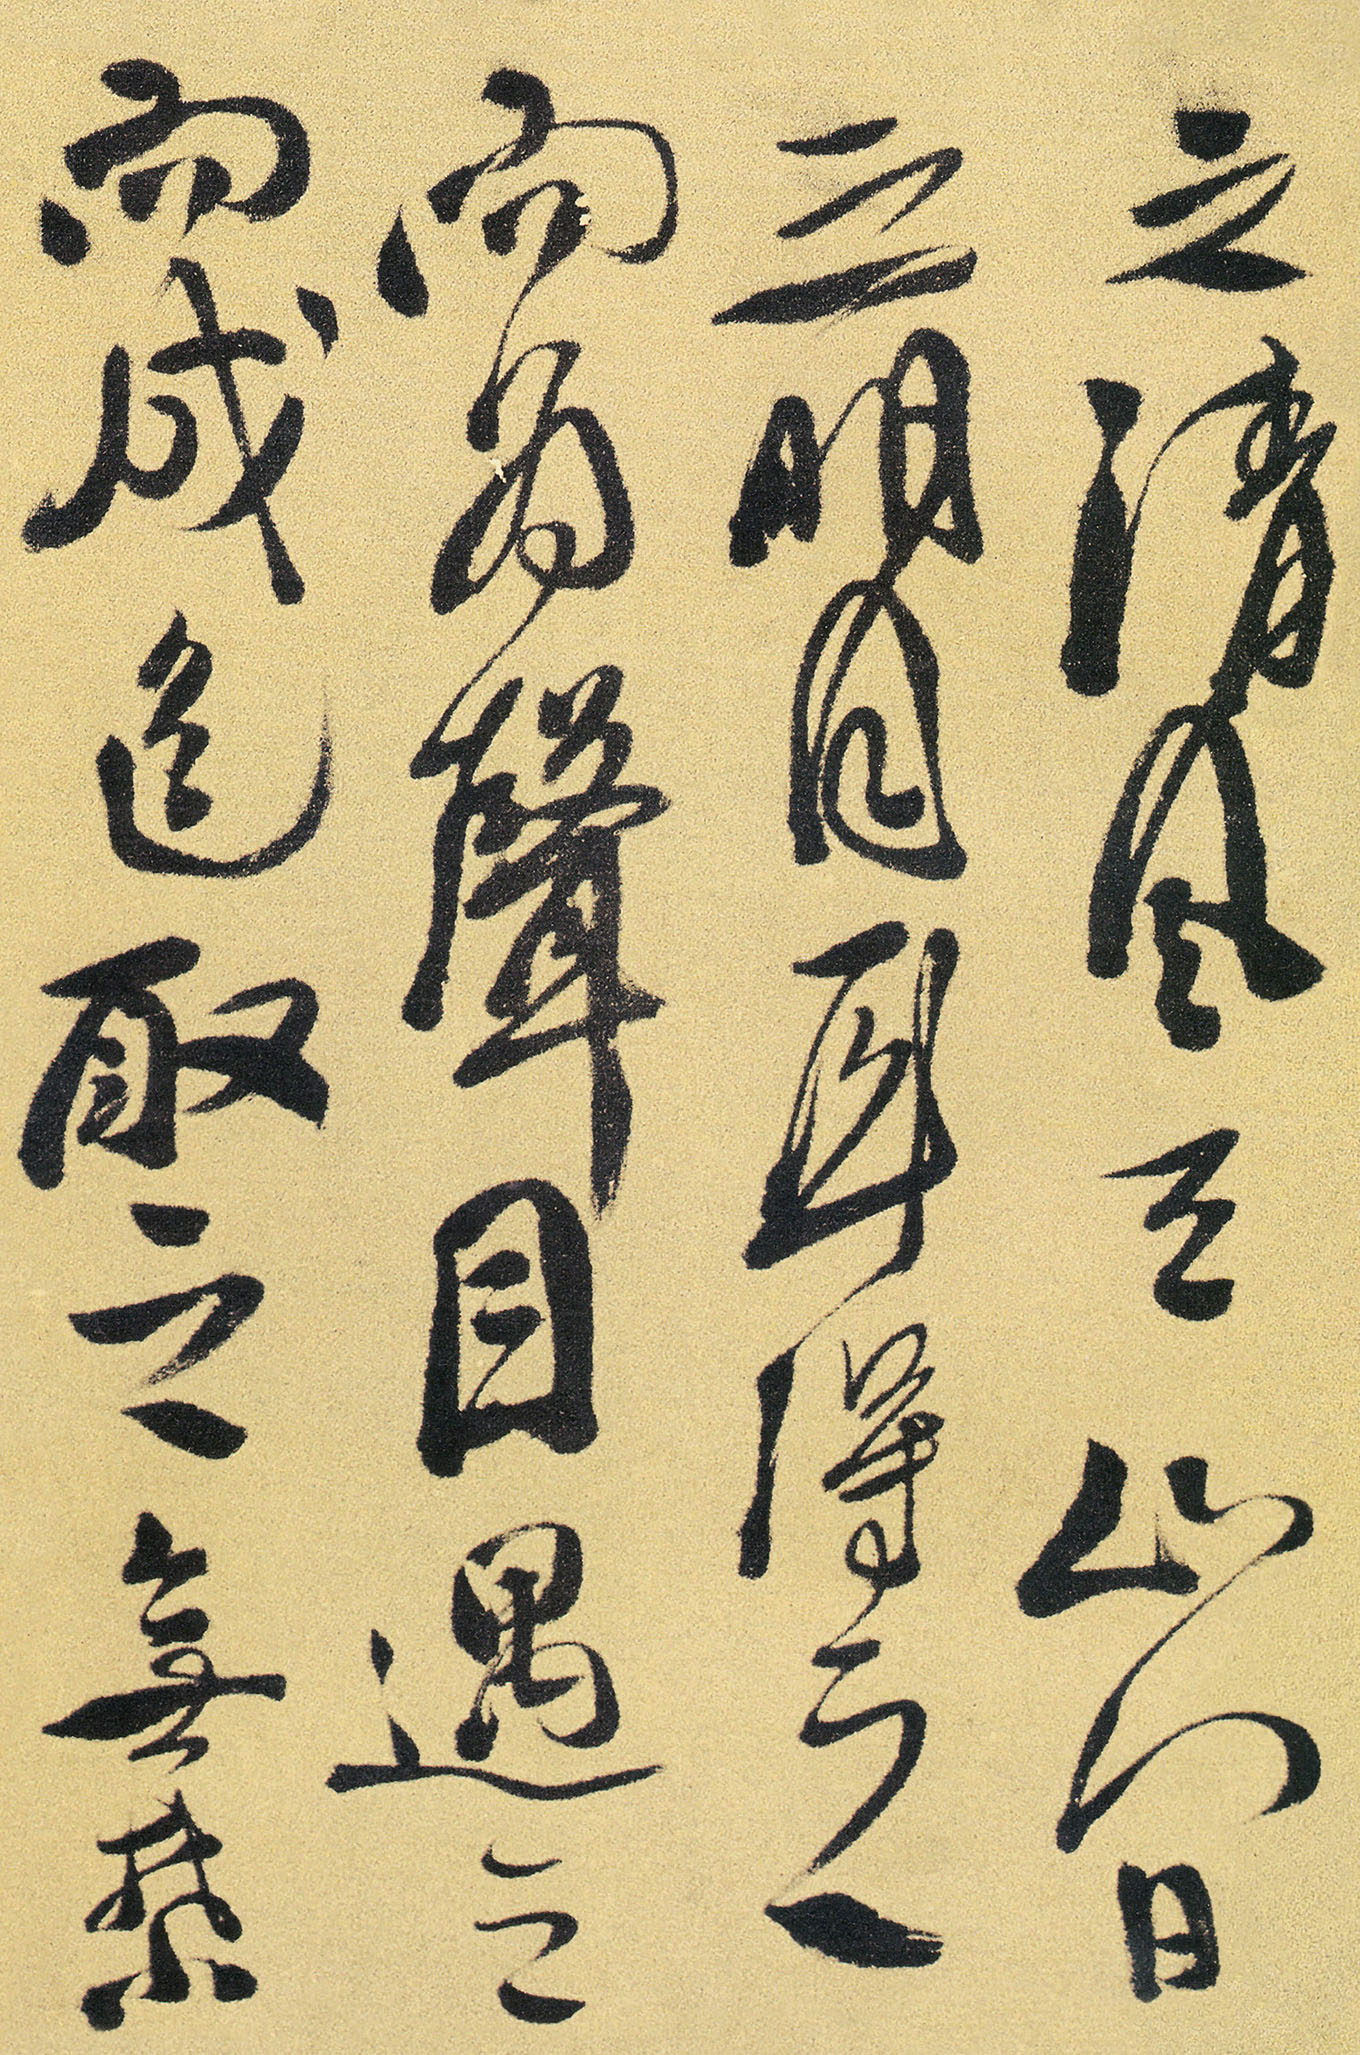 之清風與山間
之明月耳得之
而為聲目遇之
而成色取之無禁